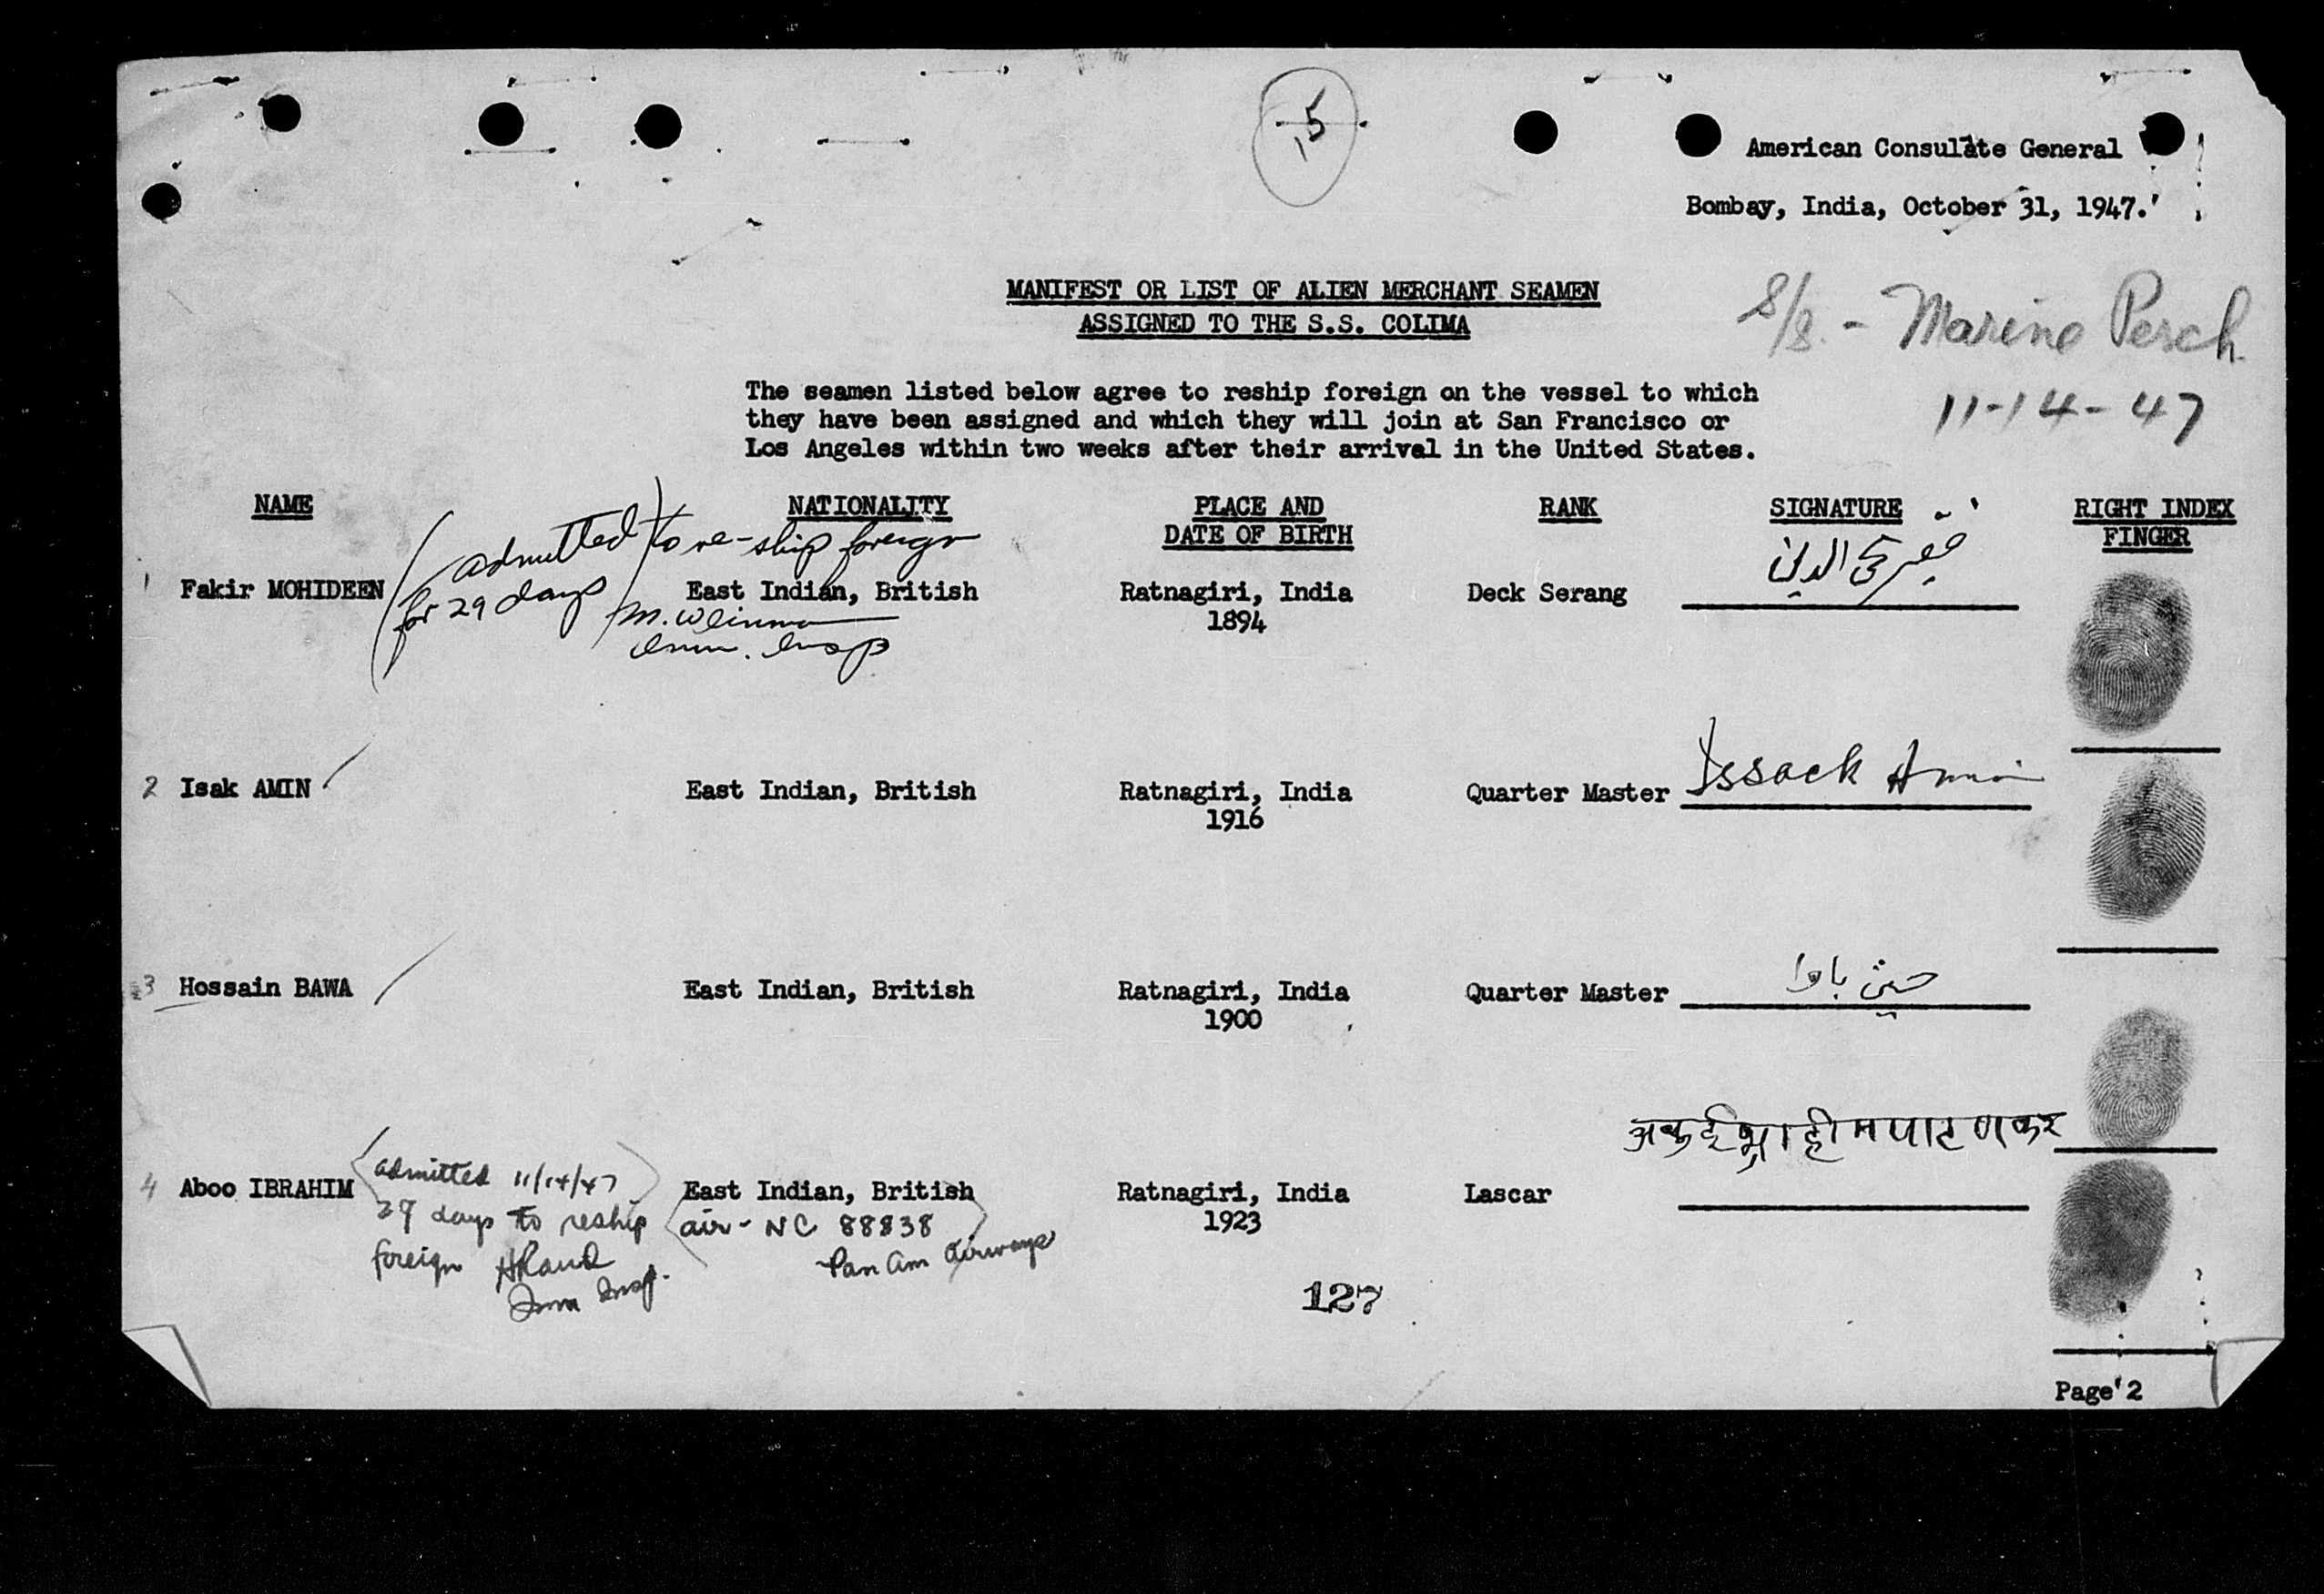 15
American Consulate General
Bombay, India, October 31, 1947.
MANIFEST OR LIST OF ALIEN MERCHANT SEAMEN
ASSIGNED TO THE S.S. COLIMA
S/S. - Marine Perch
11-14-47
The seamen listed below agree to reship foreign on the vessel to which
they have been assigned and which they will join at San Francisco or
Los Angeles within two weeks after their arrival in the United States.
NAME NATIONALITY PLACE AND DATE OF BIRTH RANK SIGNATURE RIGHT INDEX FINGER
admitted to re-ship foreign
for 29 days
1 Fakir MOHIDEEN East Indian, British Ratnagiri, India Deck Serang فقیر محی الدین
1894
M. Weinman
Imm. Insp
2 Isak AMIN East Indian, British Ratnagiri, India Quarter Master Issack Amin
1916
3 Hossain BAWA East Indian, British Ratnagiri, India Quarter Master حسین باوا
1900
अबु ईब्राहीम पाटणकर
4 Aboo IBRAHIM East Indian, British Ratnagiri, India Lascar
1923
admitted 11/14/47
29 days to reship
foreign
Imm Insp.
air - NC 88838
Pan Am Airways
127
Page 2